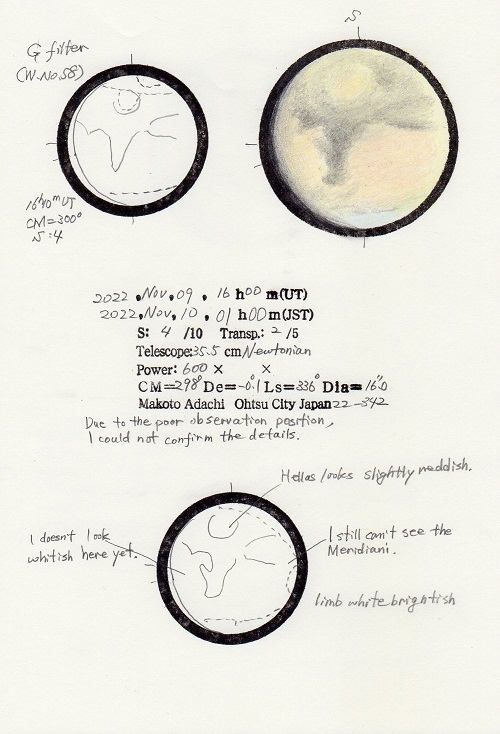 S
G filter
(W.No.58)
16h40m UT
CM=300°
S:4
2022, Nov, 09, 16 h00 m(UT)
2022, Nov, 10, 01 h00 m(JST)
S: 4 /10 Transp.: 2 /5
Telescope: 35.5 cm Newtonian
Power: 600 × ×
CM=298° De=-0.1° Ls=336° Dia=16".0
Makoto Adachi Ohtsu City Japan 22-342
Due to the poor observation position,
I could not confirm the details.
Hellas looks slightly reddish.
I doesn't look
whitish here yet.
I still can't see the
Meridiani.
limb white brightish